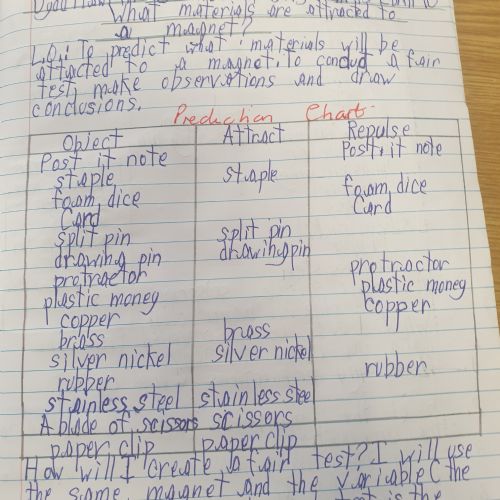 What materials are attracted to
a magnet?
L.O.: To predict what materials will be
attracted to a magnet, to conduct a fair
test, make observations and draw
conclusions.
Prediction Chart
Object Attract Repulse
Post it note Post it note
staple staple
foam, dice foam, dice
Card Card
split pin split pin
drawing pin drawing pin
protractor protractor
plastic money plastic money
copper copper
brass brass
silver nickel silver nickel
rubber rubber
stainless steel stainless steel
A blade of scissors scissors
paper clip paper clip
How will I create a fair test? I will use
the same magnet and the variable (the
is the